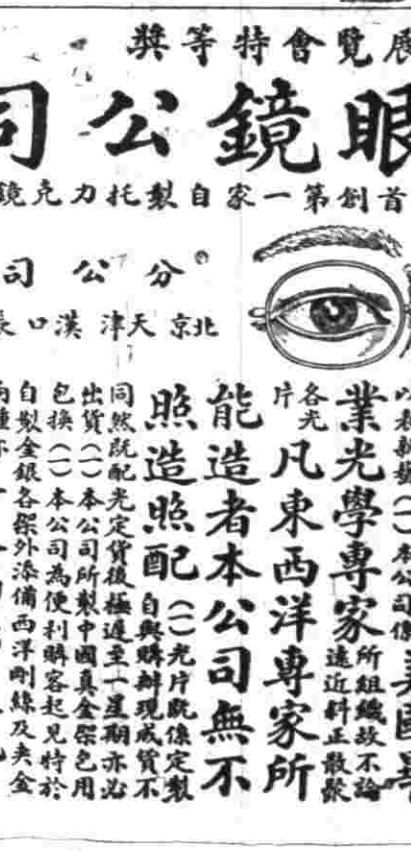 展覽會特等獎
眼鏡公司
首創第一家自製托力克鏡
分公司
北京 天津 漢口 長
(一)本公司係美國畢
業光學專家所組織故不論
遠近斜正散
各光
片
凡東西洋專家所
能造者本公司無不
照造照配(一)光片既係定製
自與購辦現成貨不
同然既配光定貨後極遲至一星期亦必
出貨(一)本公司所製中國真金架包用
包換(一)本公司為便利購客起見特於
自製金銀各架外添備西洋剛絲及夾金